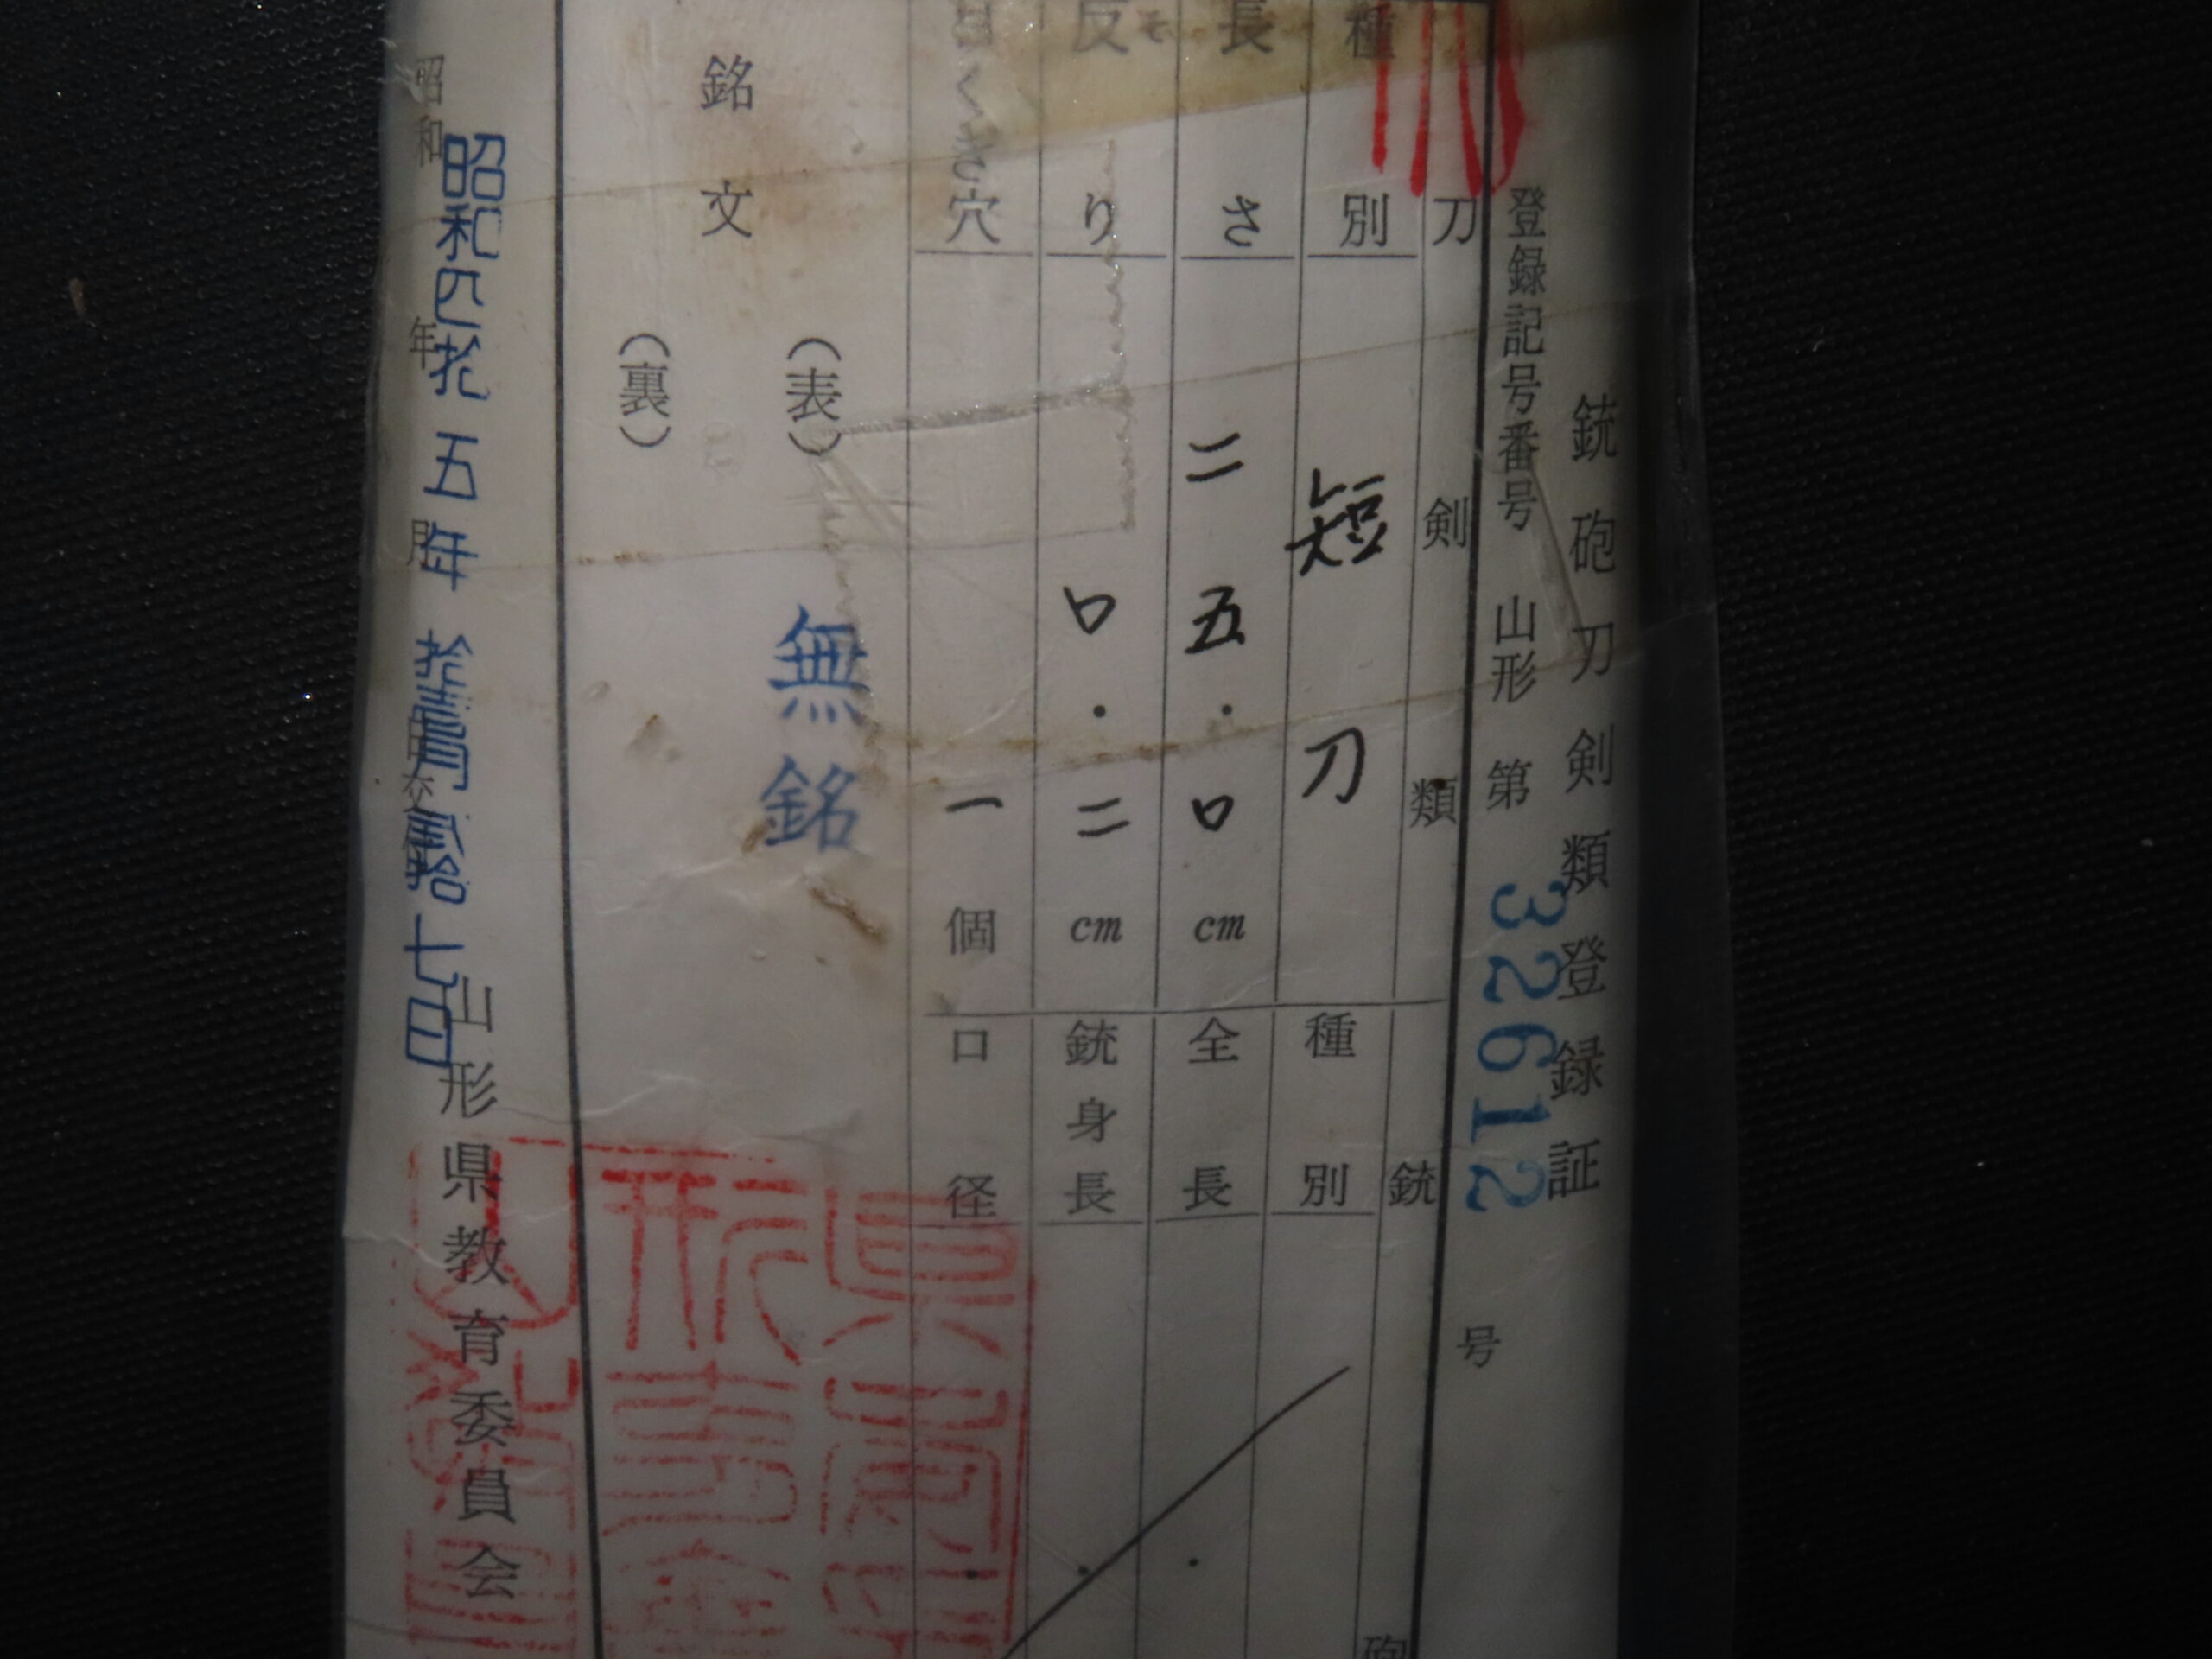 銃砲刀剣類登録証
登録記号番号 山形 第 32612 号
刀剣類
種別 短刀
長さ 二五.〇cm
反り 〇.二cm
目くぎ穴 一個
銘文
(表) 無銘
(裏)
銃砲
種別
全長
銃身長
口径
昭和 年 月 日交付
昭和四拾五年拾壱月弐拾七日
山形県教育委員会